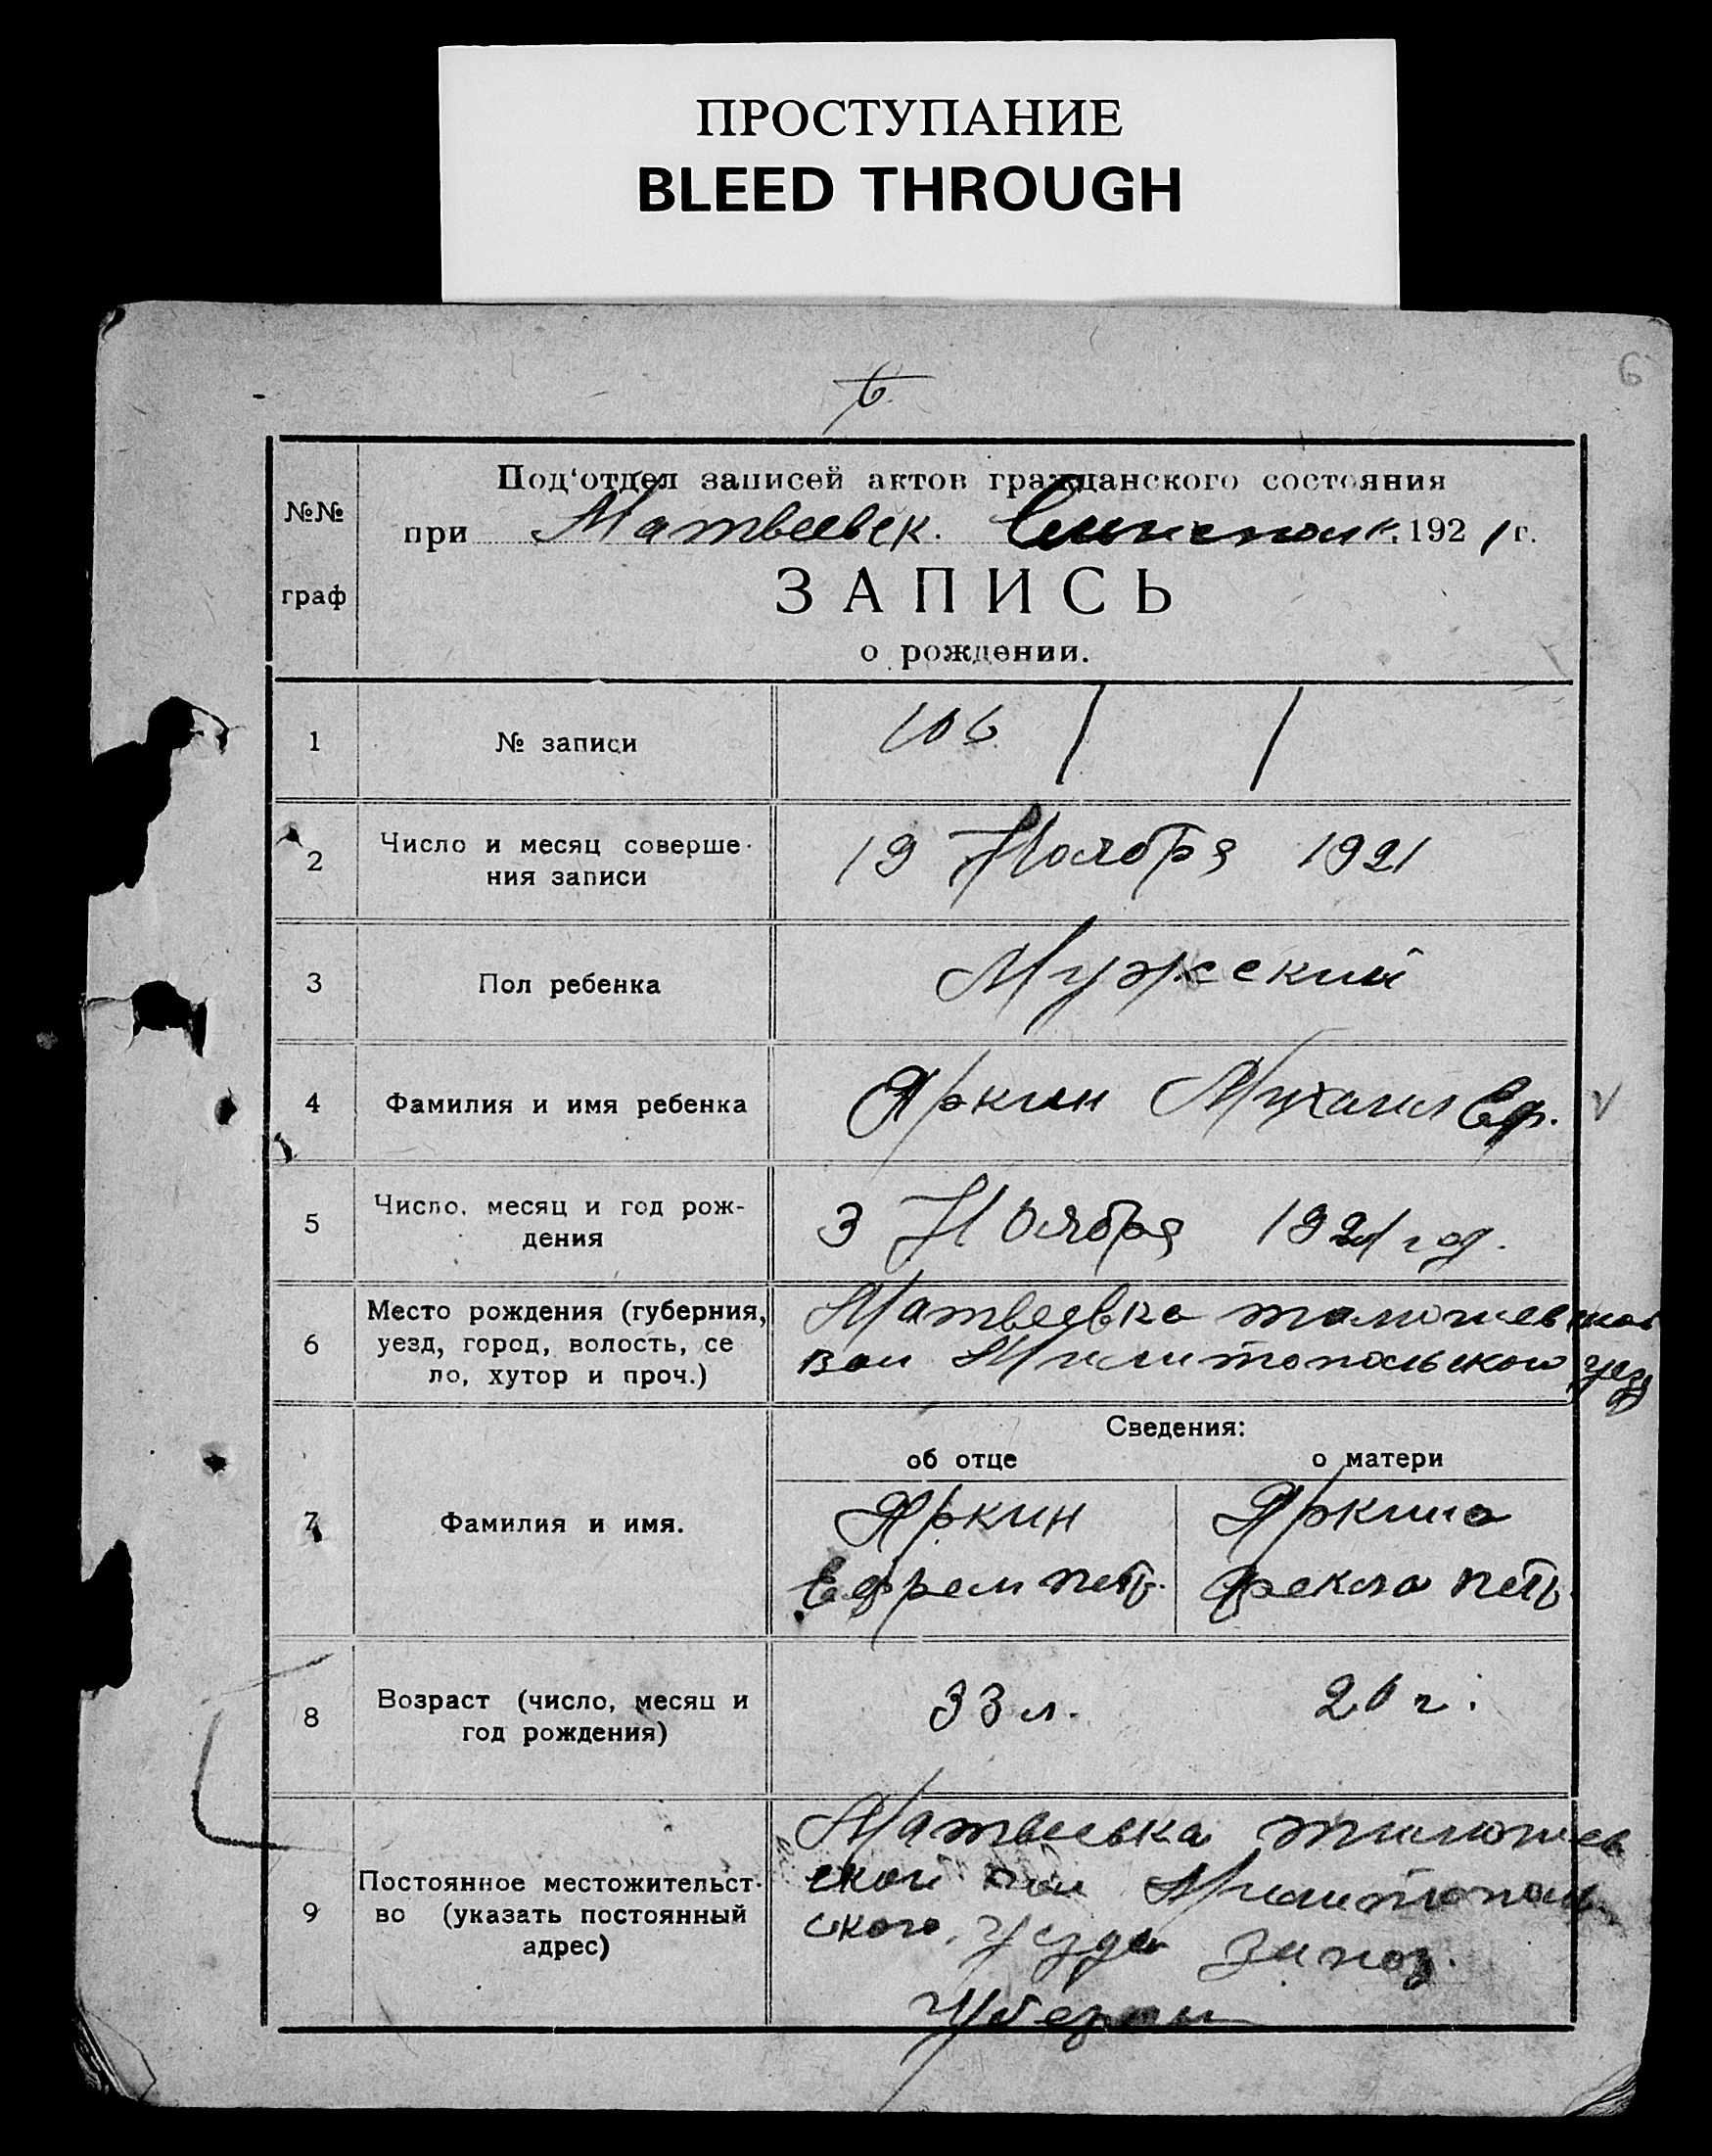 ПРОСТУПАНИЕ
BLEED THROUGH
6
6
№№
граф
Под‘отдел записей актов гражданского состояния
при Матвеевск. 1921 г.
ЗАПИСЬ
о рождении.
1 № записи 106
2 Число и месяц соверше-
ния записи 19 Ноября 1921
3 Пол ребенка Мужеский
4 Фамилия и имя ребенка Яркин Михаил Еф.
5 Число, месяц и год рож-
дения 3 Ноября 1921 год.
6 Место рождения (губерния,
уезд, город, волость, се
ло, хутор и проч.)
Матвеевка
Милитопольского уезд
Сведения:
об отце о матери
7 Фамилия и имя.
Яркин Яркина
Ефрем петр. Фекла петр.
8 Возраст (число, месяц и
год рождения) 33 л. 20 г.
9 Постоянное местожительст-
во (указать постоянный
адрес)
Матвеевка
ской Милитополь
ского, уезда Запоз.
Губернии